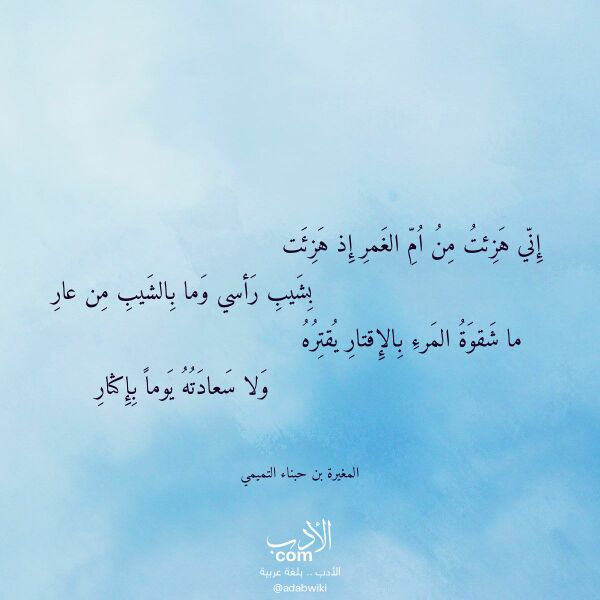 إِنّي هَزِئتُ مِنُ اُمِّ الغَمرِ إِذ هَزِئَت
بِشَيبِ رَأسي وَما بِالشَيبِ مِن عارِ
ما شَقوَةُ المَرءِ بِالإِقتارِ يُقتِرُهُ
وَلا سَعادَتُهُ يَوماً بِإِكثارِ
المغيرة بن حبناء التميمي
الأدب
com
الأدب .. بلغة عربية
@adabwiki